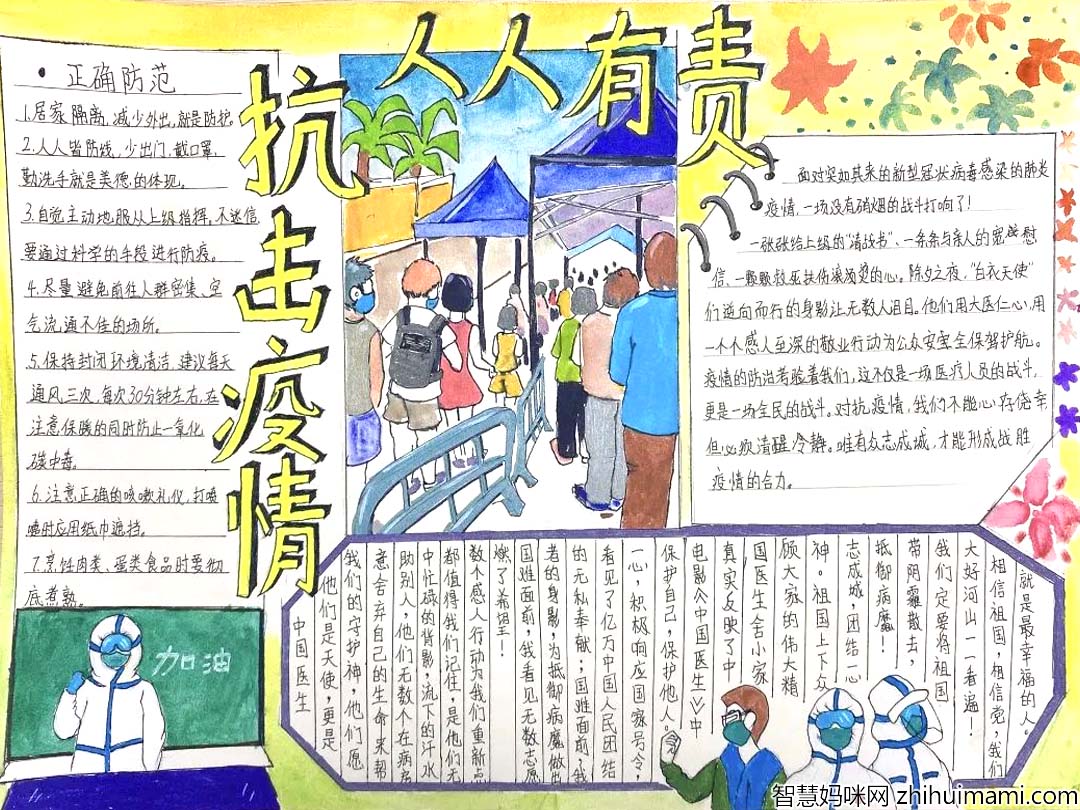 抗击疫情
人人有责
•正确防范
1.居家隔离,减少外出,就是防护.
2.人人皆防线,少出门,戴口罩.
勤洗手就是美德的体现。
3.自觉主动地服从上级指挥,不迷信
要通过科学的手段进行防疫。
4.尽量避免前往人群密集、空
气流通不佳的场所。
5.保持封闭环境清洁,建议每天
通风三次,每次30分钟左右,在
注意保暖的同时防止一氧化
碳中毒。
6.注意正确的咳嗽礼仪,打喷
嚏时应用纸巾遮挡。
7.烹饪肉类、蛋类食品时要彻
底煮熟。
加油
面对突如其来的新型冠状病毒感染的肺炎
疫情,一场没有硝烟的战斗打响了!
一张张给上级的“请战书”、一条条与亲人的宽慰
信、一颗颗救死扶伤滚滚烫的心。除夕之夜,“白衣天使”
们逆向而行的身影让无数人泪目。他们用大医仁心,用
一个个感人至深的敬业行动为公众安全保驾护航。
疫情的防治考验着我们,这不仅是一场医疗人员的战斗,
更是一场全民的战斗。对抗疫情,我们不能心存侥幸
但必须清醒冷静。唯有众志成城,才能形成战胜
疫情的合力。
中国医生
他们是天使,更是
我们的守护神,他们愿
意舍弃自己的生命来帮
助别人,他们无数个在病房
中忙碌的背影,流下的汗水
都值得我们记住,是他们无
数个感人行动为我们重新点
燃了希望!
国难面前,我看见无数志愿
者的身影,为抵御病魔做出
的无私奉献;国难面前,我
看见了亿万中国人民团结
一心,积极响应国家号令,
保护自己,保护他人。
电影《中国医生》中
真实反映了中
国医生舍小家
顾大家的伟大精
神。祖国上下众
志成城,团结一心
抵御病魔!
带阴霾散去,
我们一定要将祖国
大好河山一一看遍!
相信祖国,相信党,我们
就是最幸福的人。
智慧妈咪网 zhihuimami.com